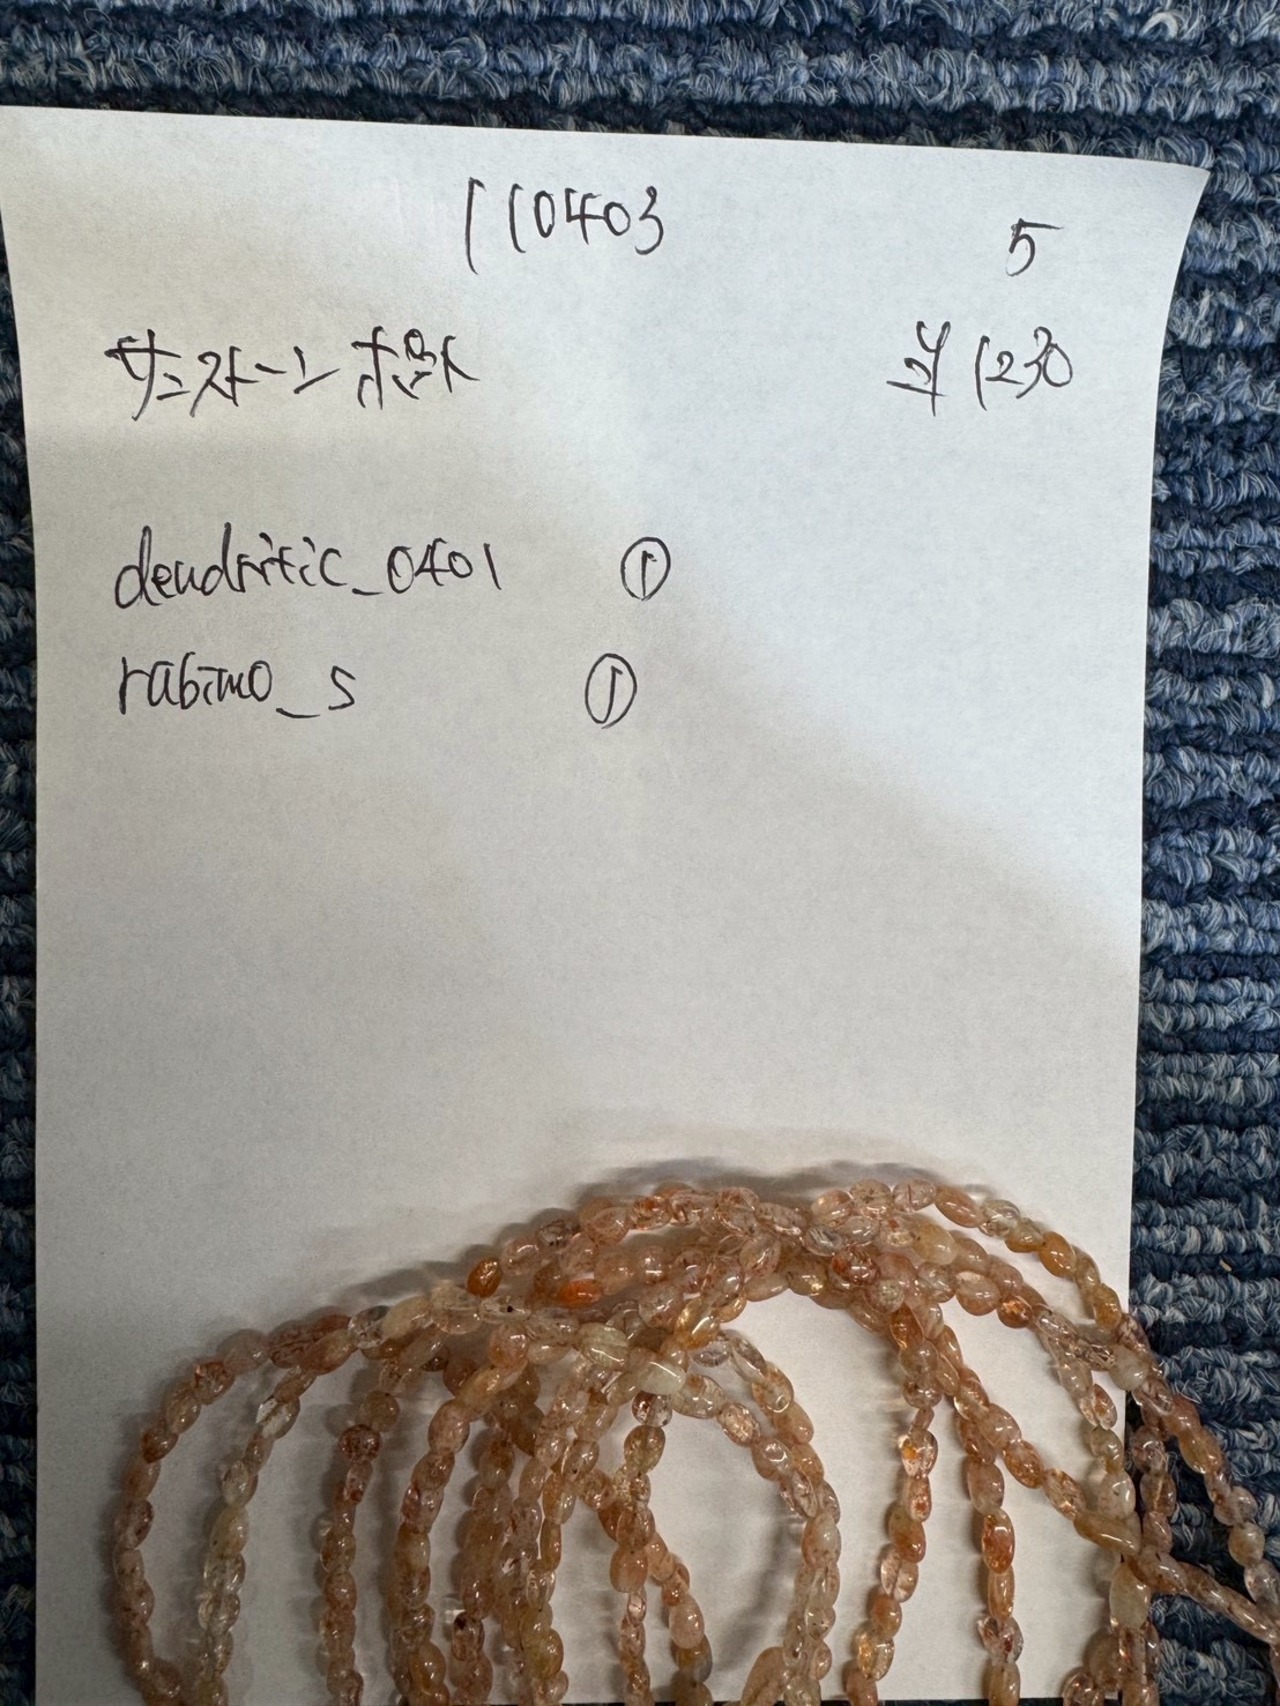 110403
5
サンストーン ポット
¥1230
dendritic_0401 ①
rabimo_s ①